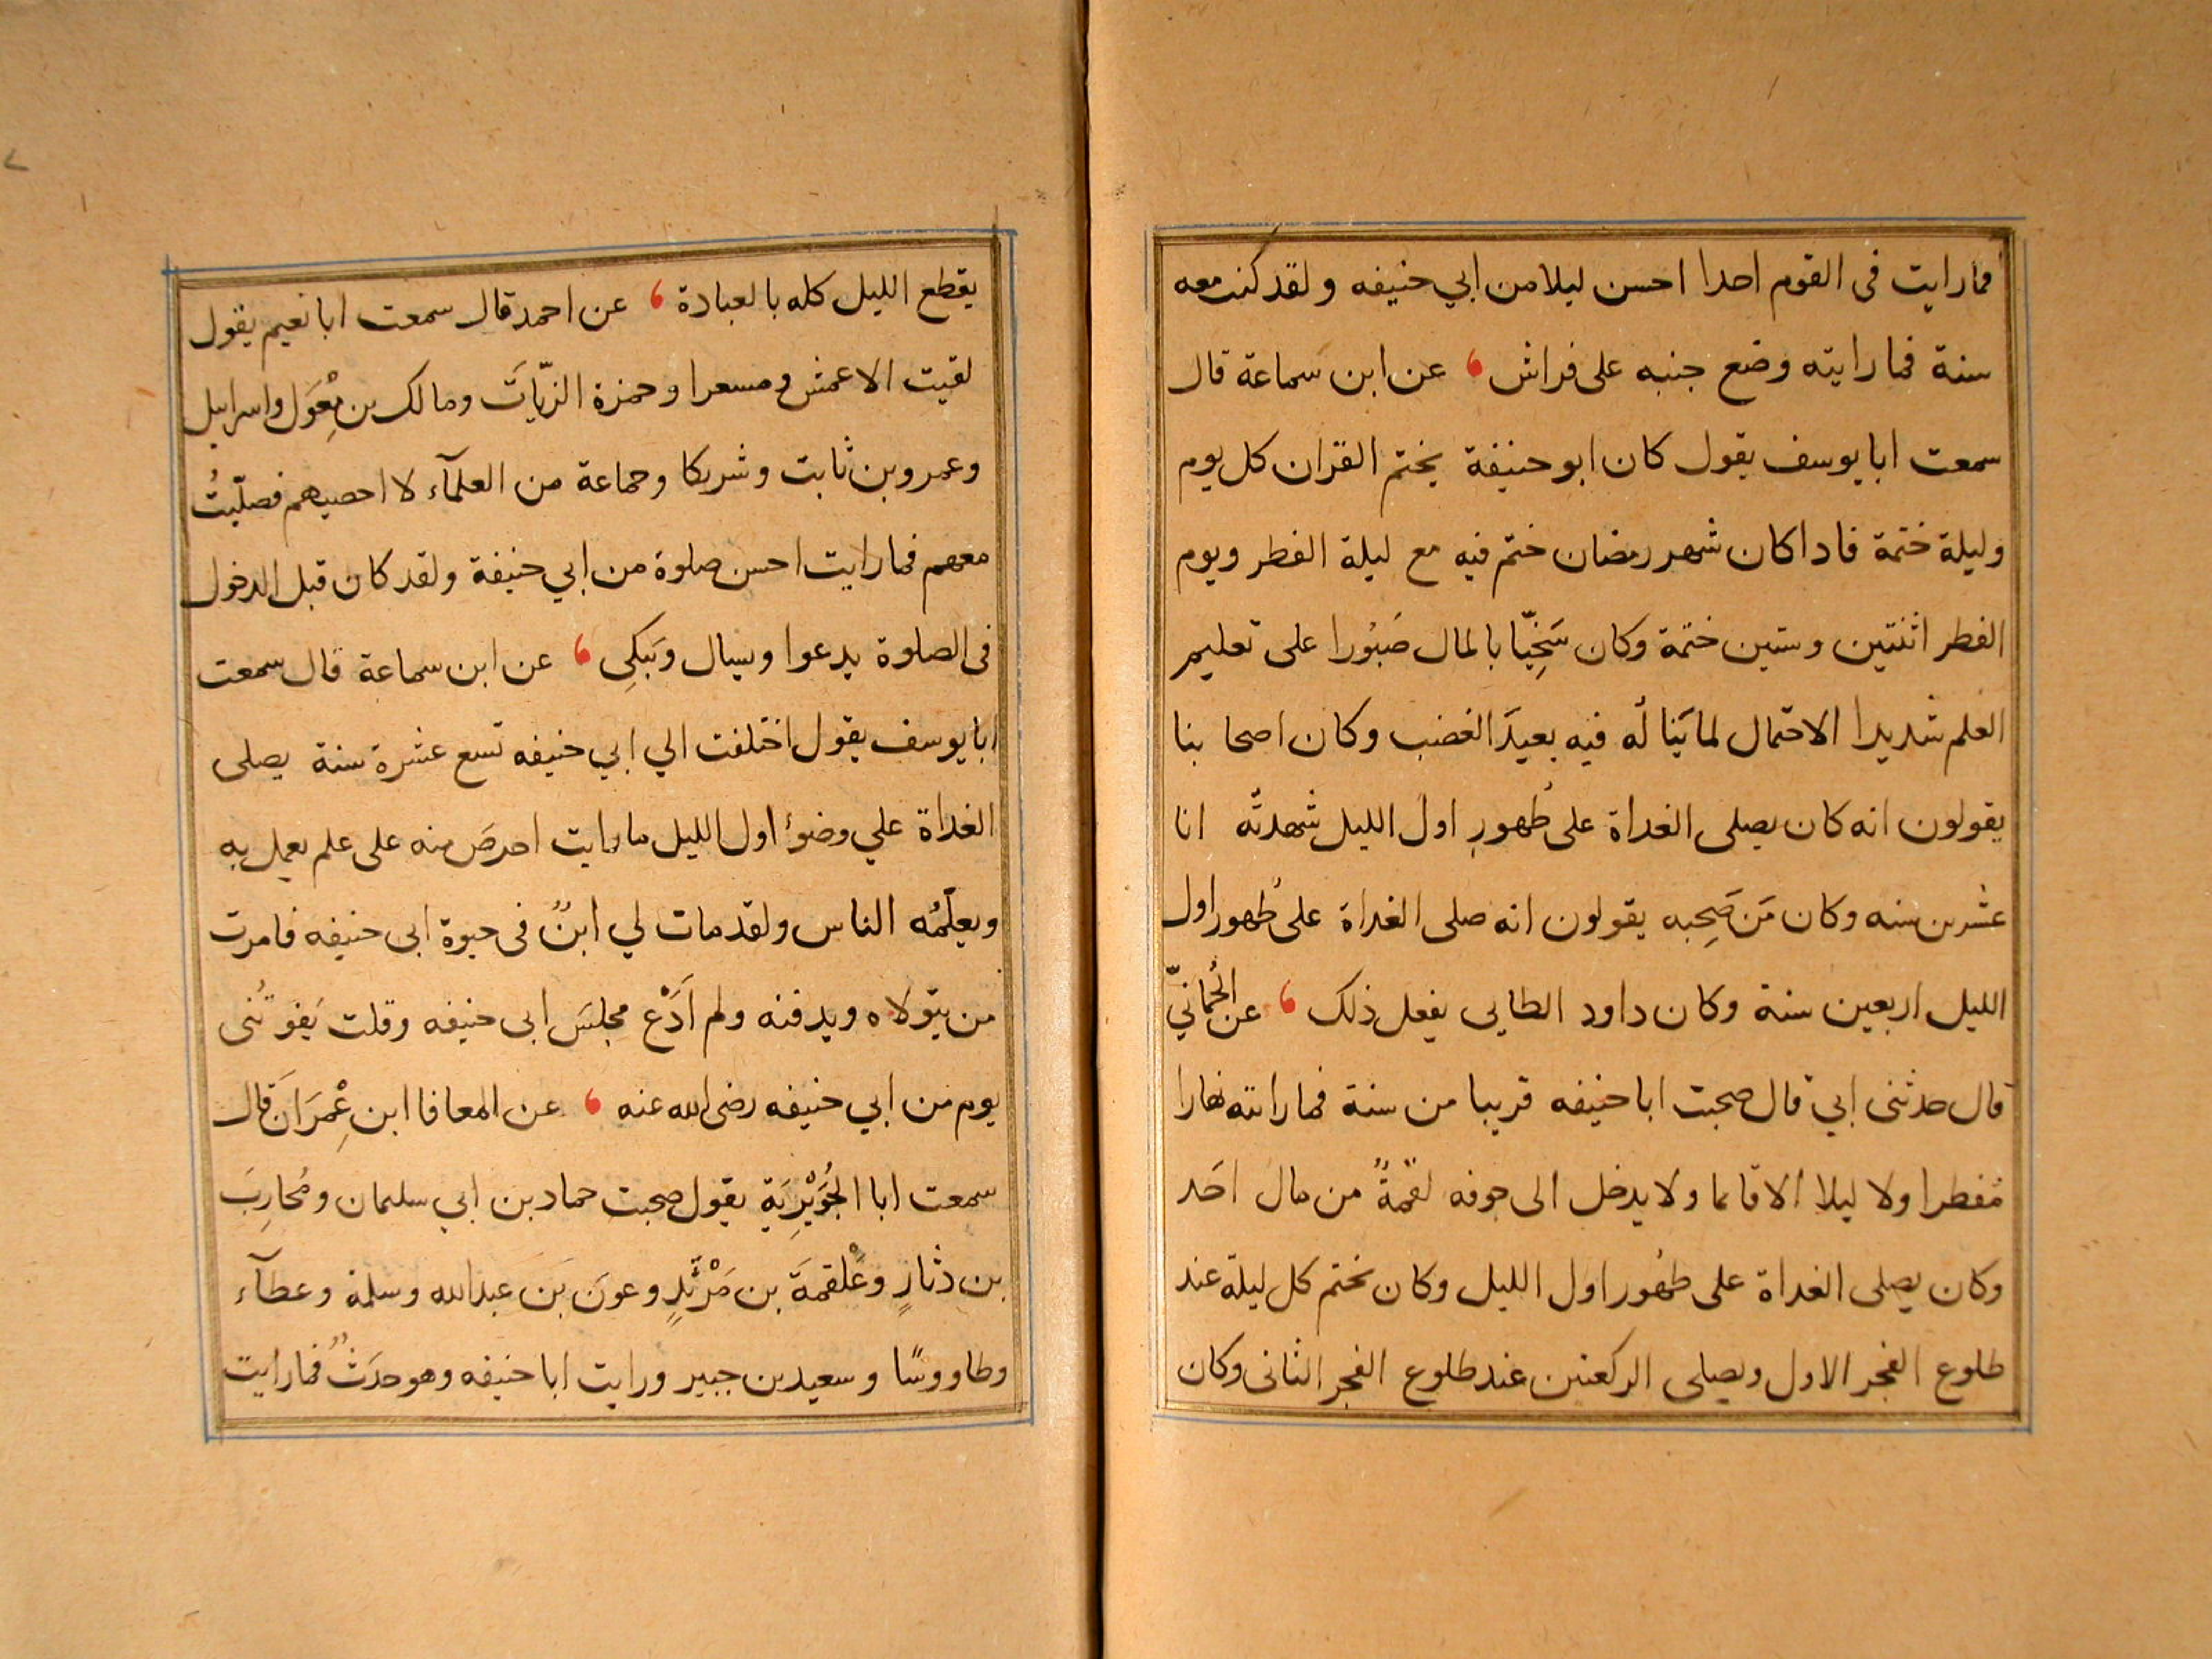 فما رايت فى القوم احدا احسن ليلا من ابي حنيفه ولقد كنت معه
سنة فما رايته وضع جنبه على فراش ، عن ابن سماعة قال
سمعت ابا يوسف يقول كان ابو حنيفة يختم القران كل يوم
وليلة ختمة فاذا كان شهر رمضان ختم فيه مع ليلة الفطر ويوم
الفطر اثنتين وستين ختمة وكان سَخِيّا بالمال صَبُورا على تعليم
العلم شديدا الاحتمال لما يَنَاله فيه بعيدَ الغضب وكان اصحابنا
يقولون انه كان يصلى الغداة على طُهورِ اول الليل شهدتُه انا
عشرين سنه وكان مَن صَحِبه يقولون انه صلى الغداة على طُهور اول
الليل اربعين سنة وكان داود الطايى يفعل ذلك ، عن الحُمانيّ
قال حدثنى ابي قال صحبت ابا حنيفه قريبا من سنة فما رايته نهارا
مفطرا ولا ليلا الا قائما ولا يدخل الى جوفه لقمةً من مال احَد
وكان يصلى الغداة على طهُور اول الليل وكان يختم كل ليلة عند
طلوع الفجر الاول ويصلى الركعتين عند طلوع الفجر الثانى وكان
يقطع الليل كله بالعبادة ، عن احمد قال سمعت ابا نعيم يقول
لقيت الاعمش ومسعرا وحمزة الزيّاتَ ومالك بن مِعْوَل واسرايل
وعمرو بن ثابت وشريكا وجماعة من العلمآء لا احصيهم فصلّيتُ
معهم فما رايت احسن صلوة من ابي حنيفة ولقد كان قبل الدخول
فى الصلوة يدعوا ويسال وَيَبكِى ، عن ابن سماعة قال سمعت
ابا يوسف يقول اختلفت الي ابي حنيفه تسع عشرة سنة يصلى
الغداة علي وضوء اول الليل ما رايت احرصَ منه على علم يعمل به
ويعلّمُه الناس ولقد مات لي ابنٌ فى حيوة ابى حنيفه فامرت
من يتولاه ويدفنه ولم اَدَعْ مجلسَ ابى حنيفه وقلت يَفوتُنى
يوم من ابي حنيفه رضى الله عنه ، عن المعافا ابن عِمْرَان قال
سمعت ابا الجُوَيْرِيَةِ يقول صحبت حماد بن ابي سليمان ومُحارِبَ
بن دثارٍ وعَلْقمةَ بن مَرْثَدٍ وعونَ بنَ عبد الله وسلمة وعطآء
وطاووسًا وسعيد بن جبير ورايت ابا حنيفه وهو حدَثٌ فما رايت